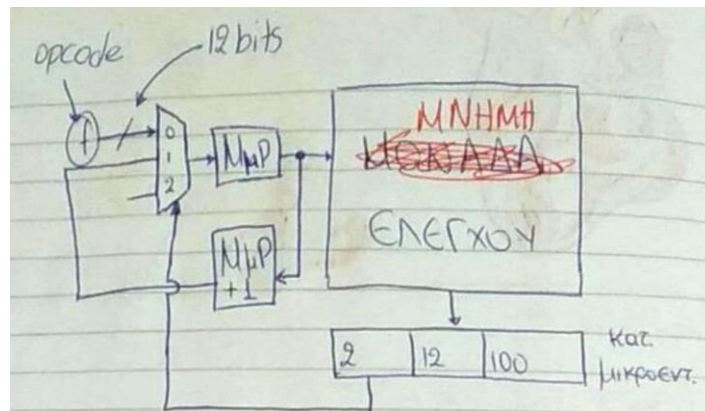 opcode
12 bits
f
0
1
2
ΜμΡ
ΜμΡ
+1
ΜΝΗΜΗ
ΕΛΕΓΧΟΥ
2 12 100
κατ.
μικροεντ.